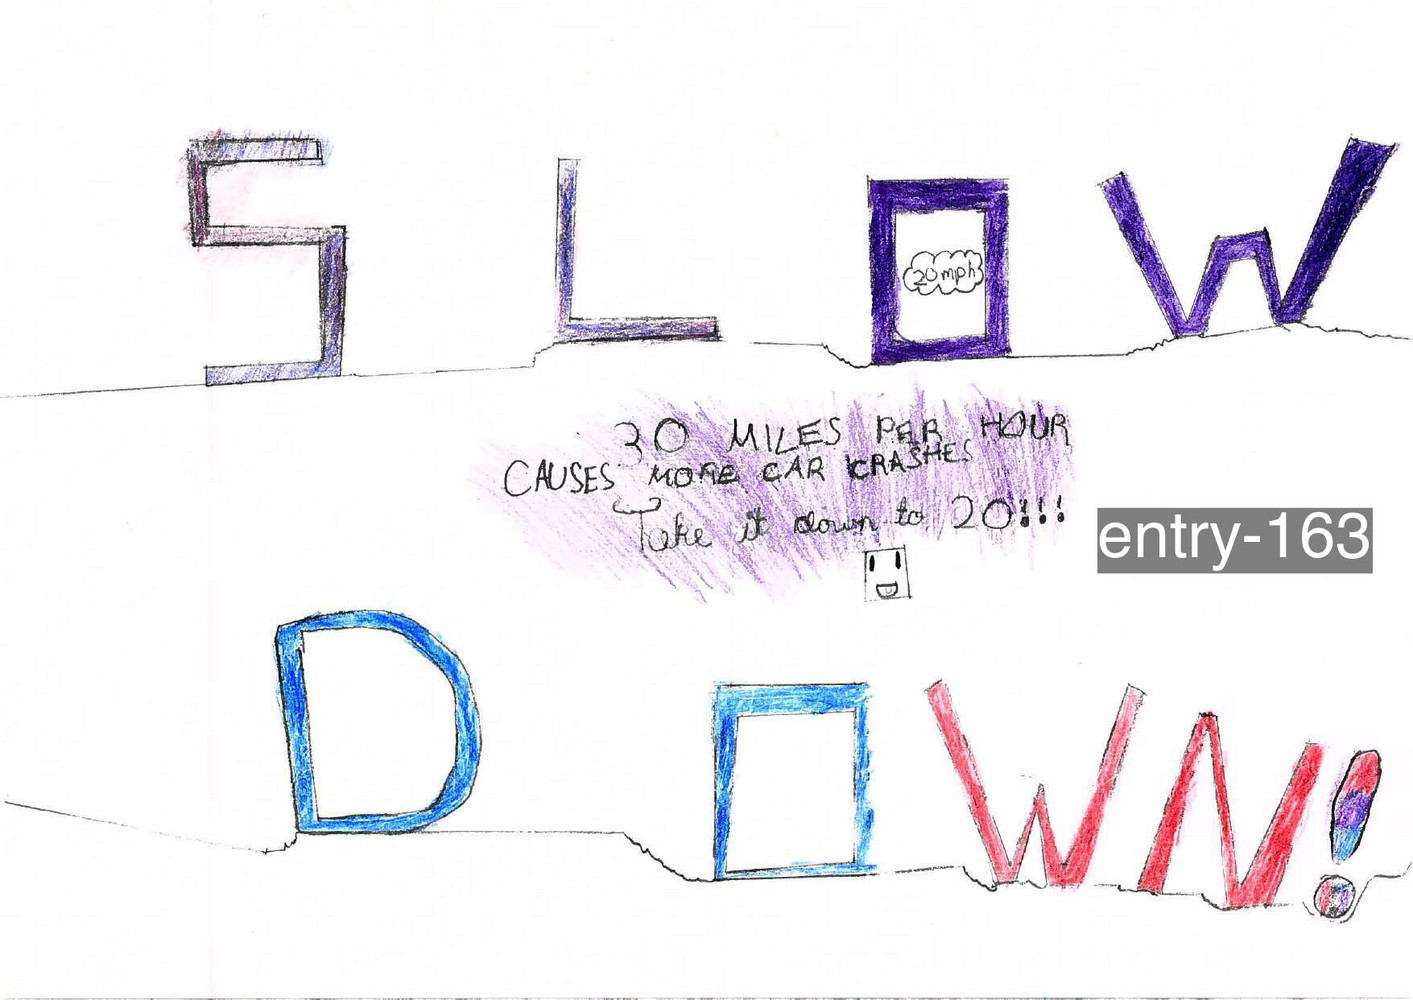 SLOW
20mph
30 MILES PER HOUR
CAUSES MORE CAR CRASHES
Take it down to 20!!!
entry-163
DOWN!